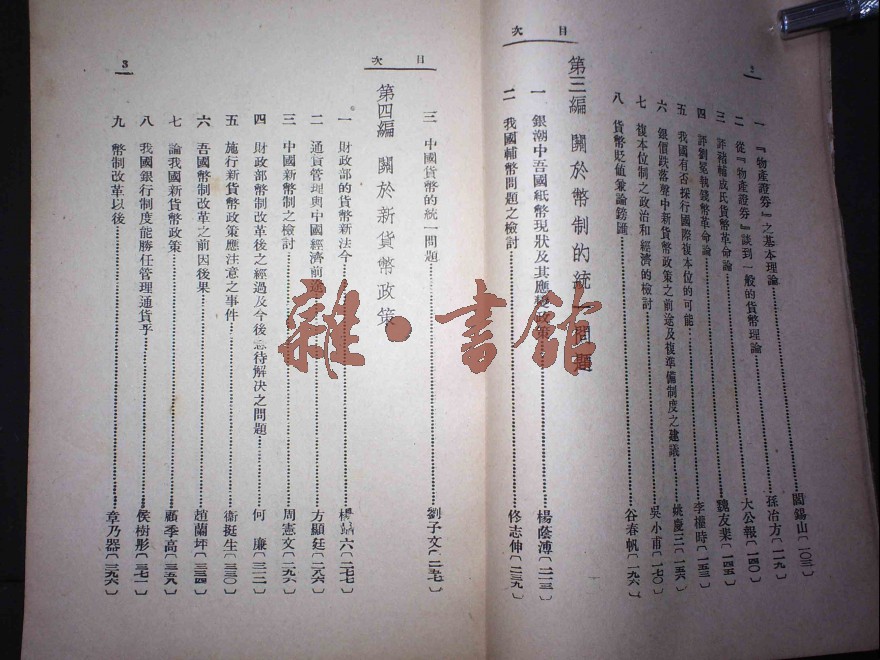 2
目次
一 『物產證券』之基本理論……閻錫山〔一〇三〕
二 從『物產證券』談到一般的貨幣理論……孫冶方〔一一九〕
三 評褚輔成氏貨幣革命論……大公報〔一四〇〕
四 評劉冕執錢幣革命論……魏友棐〔一四五〕
五 我國有否採行國際複本位的可能……李權時〔一五三〕
六 銀價跌落聲中新貨幣政策之前途及複準備制度之建議……姚慶三〔一五六〕
七 複本位制之政治和經濟的檢討……吳小甫〔一七〇〕
八 貨幣貶值兼論鎊匯……谷春帆〔一九六〕
第三編 關於幣制的統 問題
一 銀潮中吾國紙幣現狀及其應變政策……楊蔭溥〔二一三〕
二 我國輔幣問題之檢討……佟志伸〔二三九〕
目次
3
三 中國貨幣的統一問題……劉子文〔二五七〕
第四編 關於新貨幣政策
一 財政部的貨幣新法令……楊端六〔二七七〕
二 通貨管理與中國經濟前途……方顯廷〔二八六〕
三 中國新幣制之檢討……周憲文〔二九六〕
四 財政部幣制改革後之經過及今後急待解決之問題……何廉〔三一二〕
五 施行新貨幣政策應注意之事件……衞挺生〔三三〇〕
六 吾國幣制改革之前因後果……趙蘭坪〔三三四〕
七 論我國新貨幣政策……顧季高〔三五八〕
八 我國銀行制度能勝任管理通貨乎……侯樹彤〔三七一〕
九 幣制改革以後……章乃器〔三九六〕
雜·書館